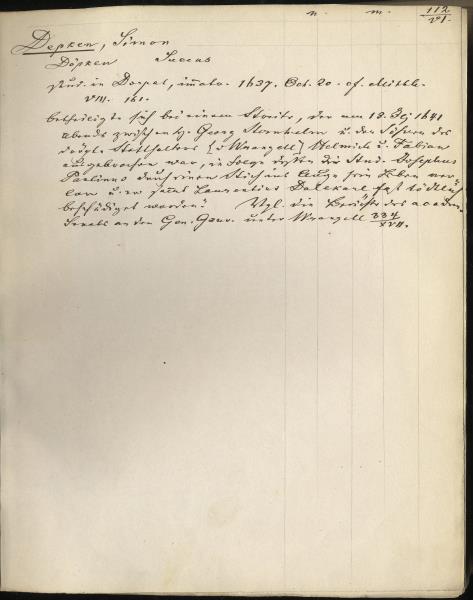 n. m. 112
VI.
Depken, Simon
Döpken Suecus
stud. in Dorpat, immatr. 1637. Oct. 20. cf. Mitthl.
VIII. 161.
betheiligte sich bei einem Streite, der am 18. 1641
Abends zwischen Georg Sternhelm u. den Söhnen des
Statthalters (v Wrangell) Helmich u. Fabian
ausgebrochen war, in Folge dessen die Stud. Josephus
Paulinus durch einen Stich ins Auge sein Leben ver-
lor u. Laurentius Dalekarl fast tödlich
beschädigt worden. Vgl. die Berichte des academ.
Senats an den Gen. Gouv. unter Wrangell 334
XVII.